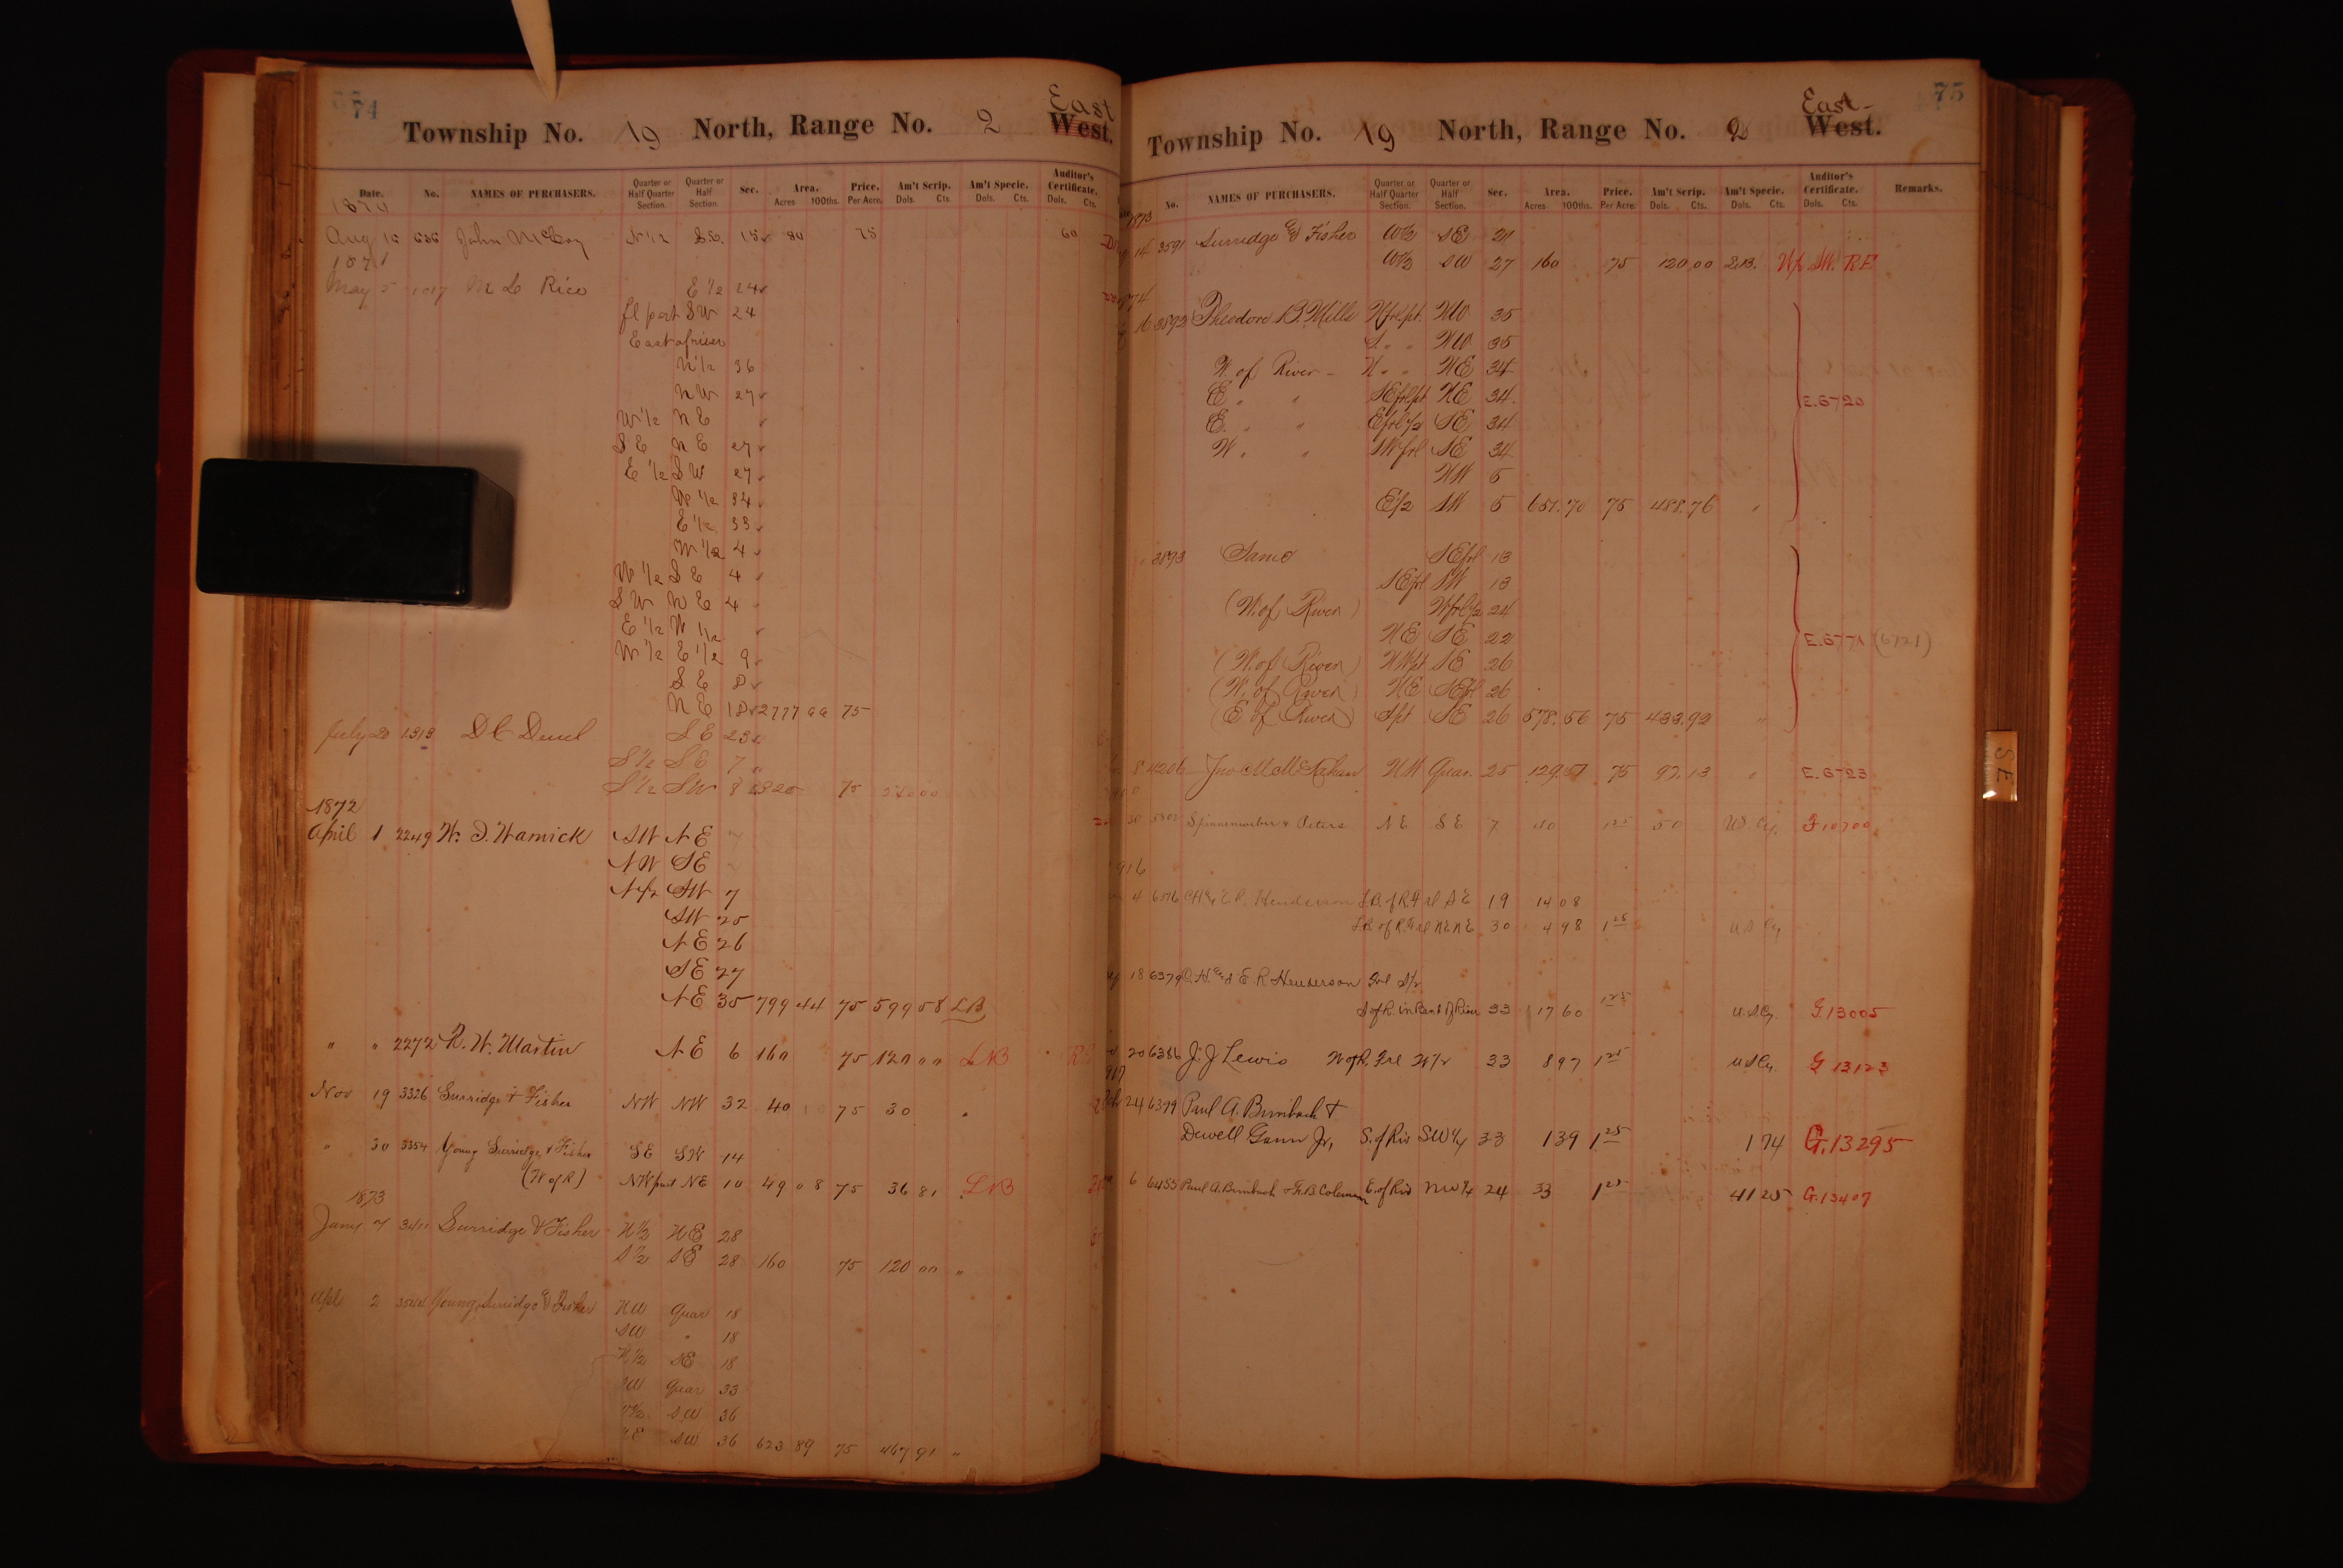 74
Township No. 19 North, Range No. 2 East West.
Date. No. NAMES OF PURCHASERS. Quarter or Half Quarter Section. Quarter or Half Section. Sec. Area. Acres 100ths. Price. Per Acre. Am't Scrip. Dols. Cts. Am't Specie. Dols. Cts. Auditor's Certificate. Dols. Cts.
1870
Aug 16 686 John McCoy N 1/2 S.E. 15 80 75 60
1871
May 5 1017 M L Rice E 1/2 24
fl part SW 24
East of river
N 1/2 36
NW 27
W 1/2 NE
SE NE 27
E 1/2 SW 27
W 1/2 34
E 1/2 33
W 1/2 4
W 1/2 SE 4
SW NE 4
E 1/2 W 1/2
W 1/2 E 1/2 9
SE
NE 18 2777 75
July 20 1313 SE 23
S 1/2 SE 7
S 1/2 SW 8 320 75
1872
April 1 2249 W. D. Warnick SW NE
NW SE
N 1/2 SW 7
SW 25
NE 26
SE 27
NE 35 799 44 75 599 58 LB
" " 2272 R. W. Martin NE 6 160 75 120 00 LNB
Nov 19 3326 Surridge & Fisher NW NW 32 40 75 30 "
" 30 3354 Young Surridge & Fisher SE SW 14
(W of R) NW part NE 10 49 08 75 36 81 LNB
1873
Jany 7 3411 Surridge & Fisher N 1/2 NE 28
S 1/2 SE 28 160 75 120 00 "
Apl 2 Young Surridge & Fisher NW Quar 18
SW " 18
N 1/2 SE 18
SW Quar 33
SW 36
NE SW 36 623 89 75 467 91 "
75
Township No. 19 North, Range No. 2 East West.
No. NAMES OF PURCHASERS. Quarter or Half Quarter Section. Quarter or Half Section. Sec. Area. Acres 100ths. Price. Per Acre. Am't Scrip. Dols. Cts. Am't Specie. Dols. Cts. Auditor's Certificate. Dols. Cts. Remarks.
1873
14 3591 Surridge & Fisher W 1/2 SE 21
W 1/2 SW 27 160 75 120.00
74
16 3892 Theodore B. Mills N frl. pt. NW 35
S. " " NW 35
W. of River - N " " NE 34
E. " " SE frl pt NE 34
E. " " E frl 1/2 SE 34
W. " " SW frl SE 34
NW 5
E 1/2 SW 5 651.70 75 488.76 "
E. 6720
" 3893 Same SE frl 13
SE frl SW 13
(W. of River) W frl 1/2 24
NE SE 22
(W. of River) NW pt SE 26
(W. of River) NE SE frl 26
(E of River) S pt SE 26 578.56 75 433.92 "
E. 6771 (6721)
8 4206 Jno M McKahan NW Quar. 25 129.51 75 97.13 " E. 6723
30 NE SE 7 40 1 25 50 U.S. Cy.
1916
4 6376 C H & E R. Henderson SE 19 14 08
30 4 98 1 25 U S Cy
18 6379 C. H. and E. R Henderson Frl S 1/2
S of R. in Bend of River 33 17 60 1 25 U.S. Cy. G. 13005
20 6386 J. J Lewis W of R. Frl W 1/2 33 8 97 1 25 U S Cy. G 13123
24 6399 Paul A. Bimbach &
Dewell Gann Jr, S. of Riv SW 1/4 33 1 39 1 25 1 74 G. 13295
6 6455 Paul A. Bimbach & Fr. B. Coleman E. of Riv NW 1/4 24 33 1 25 41 25 G. 13407
SE